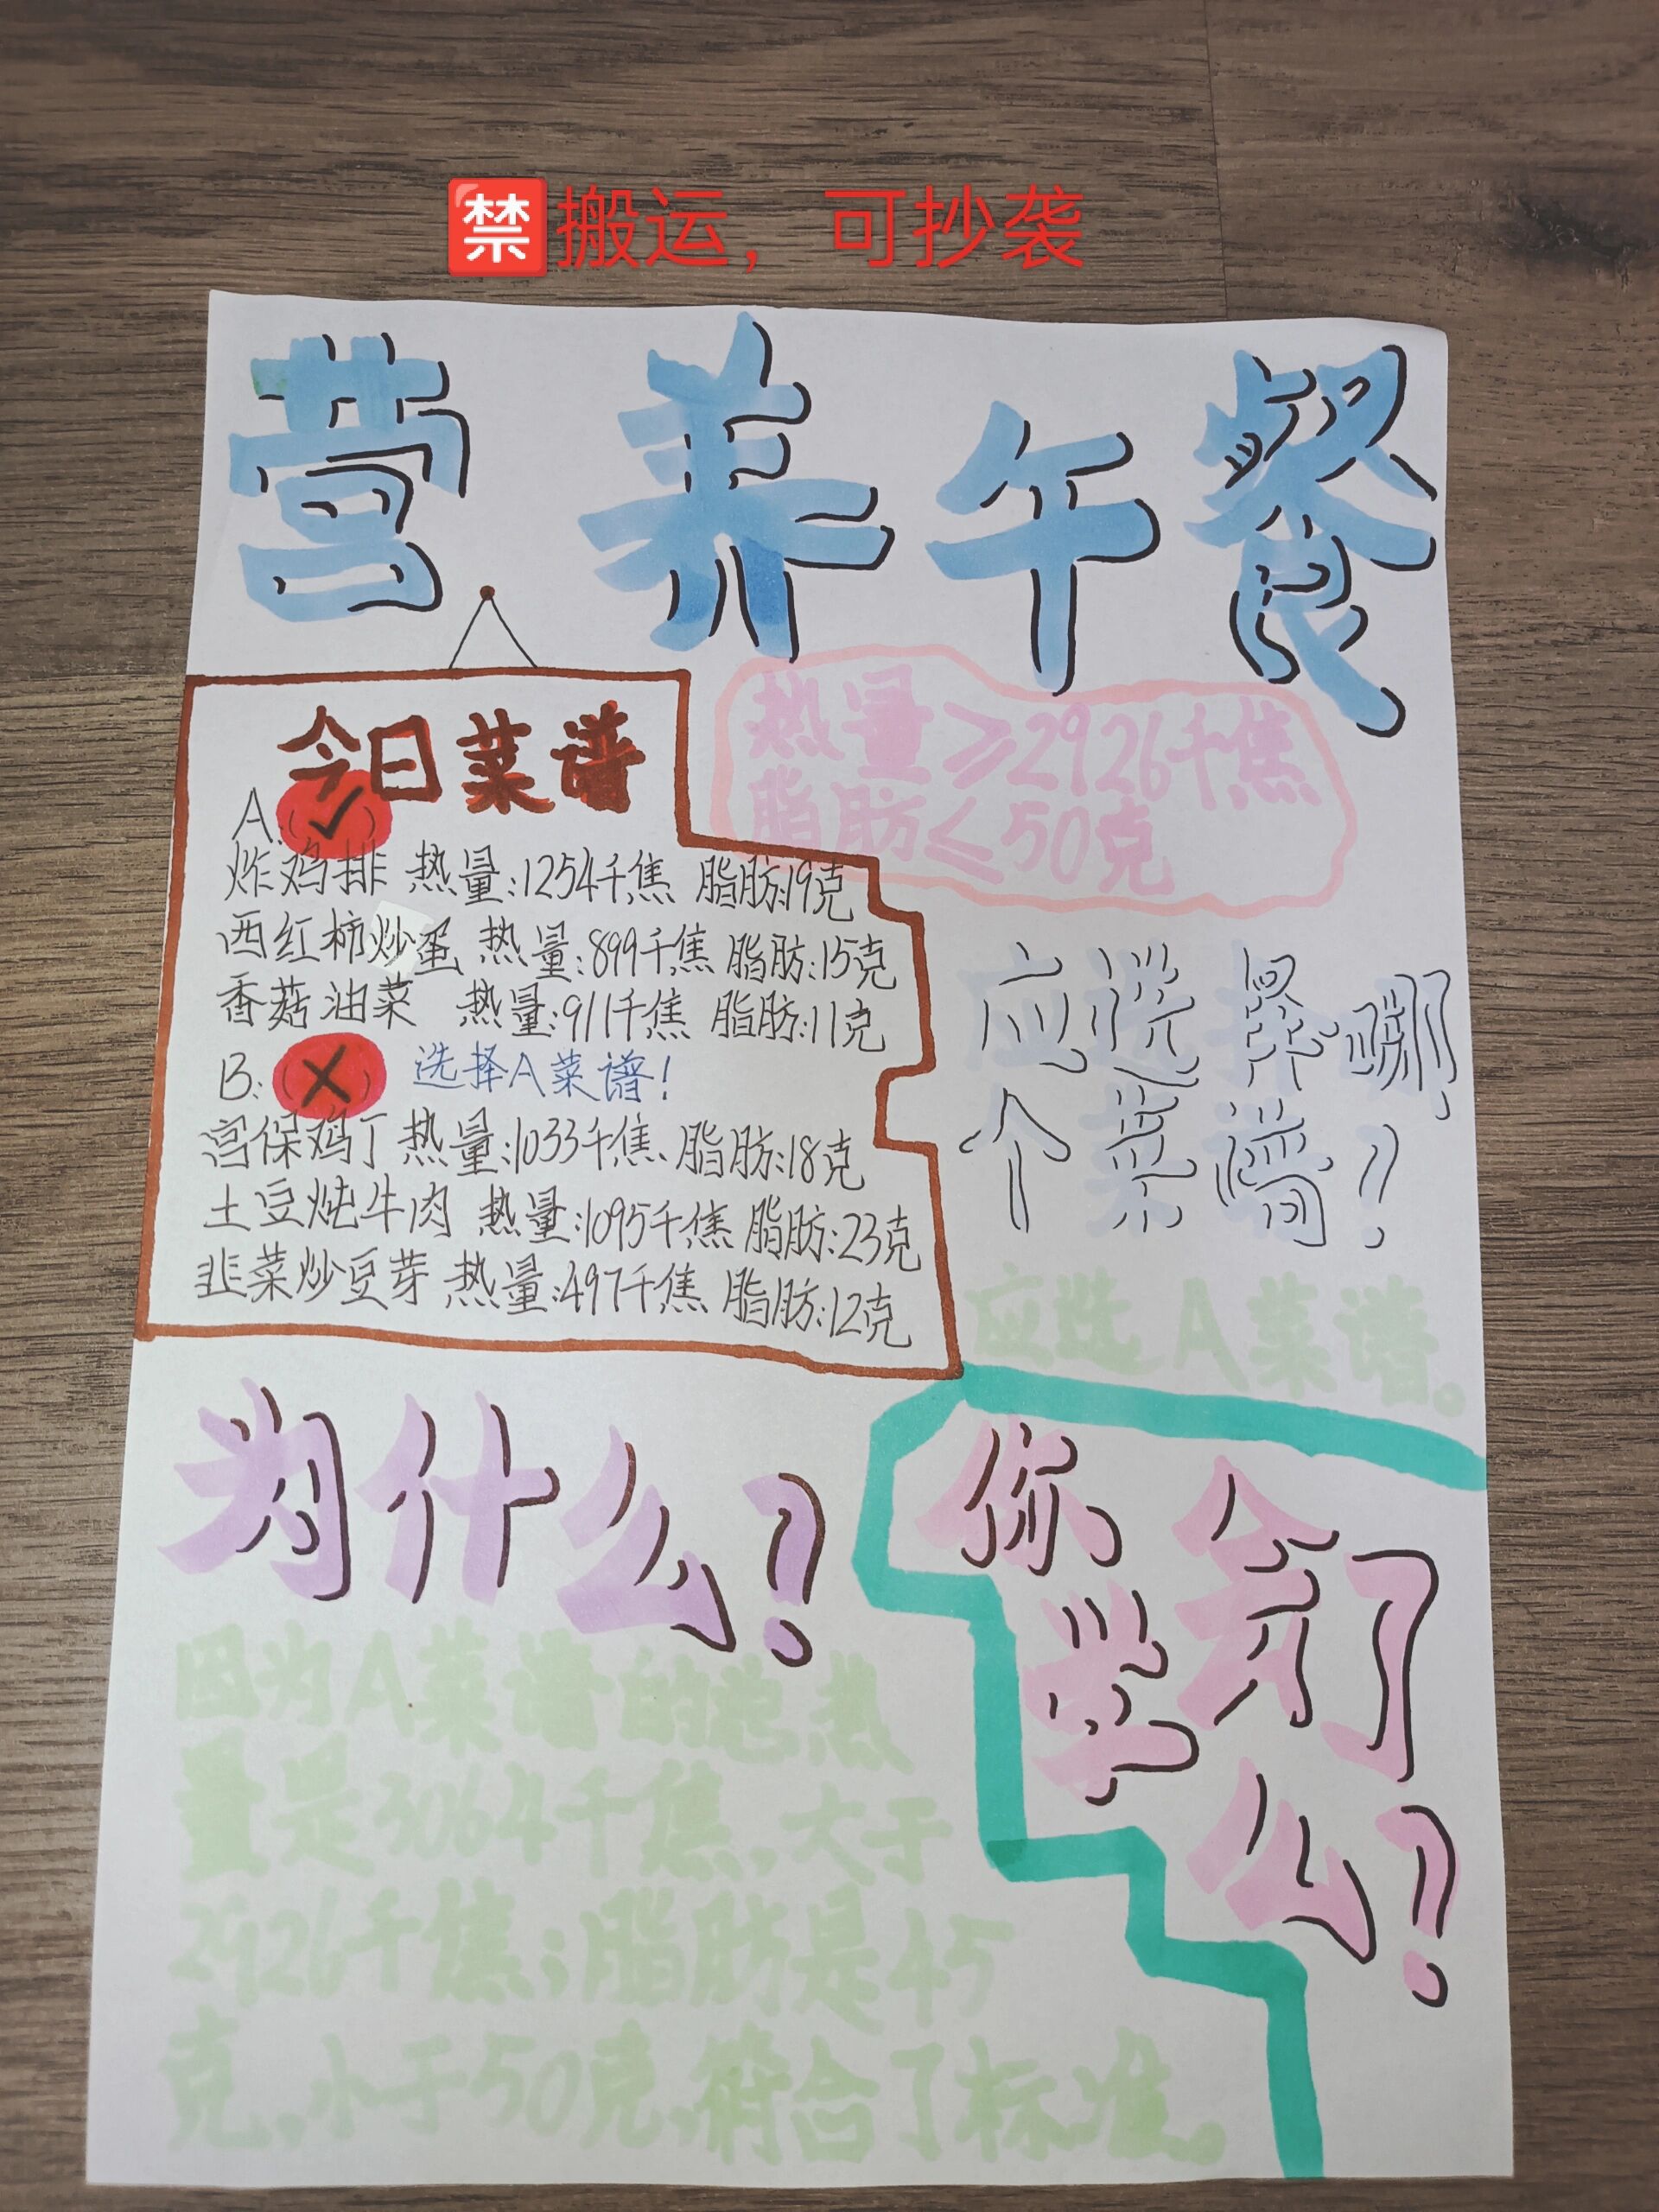 禁搬运，可抄袭
营养午餐
热量≥2926千焦
脂肪≤50克
今日菜谱
A:(✓)
炸鸡排 热量:1254千焦 脂肪:19克
西红柿炒蛋 热量:899千焦 脂肪:15克
香菇油菜 热量:911千焦 脂肪:11克
B:(×) 选择A菜谱!
宫保鸡丁 热量:1033千焦 脂肪:18克
土豆炖牛肉 热量:1095千焦 脂肪:23克
韭菜炒豆芽 热量:497千焦 脂肪:12克
应选择哪
个菜谱?
应选A菜谱。
为什么?
因为A菜谱的总热
量是3064千焦,大于
2926千焦;脂肪是45
克,小于50克,符合了标准。
你学会了么?